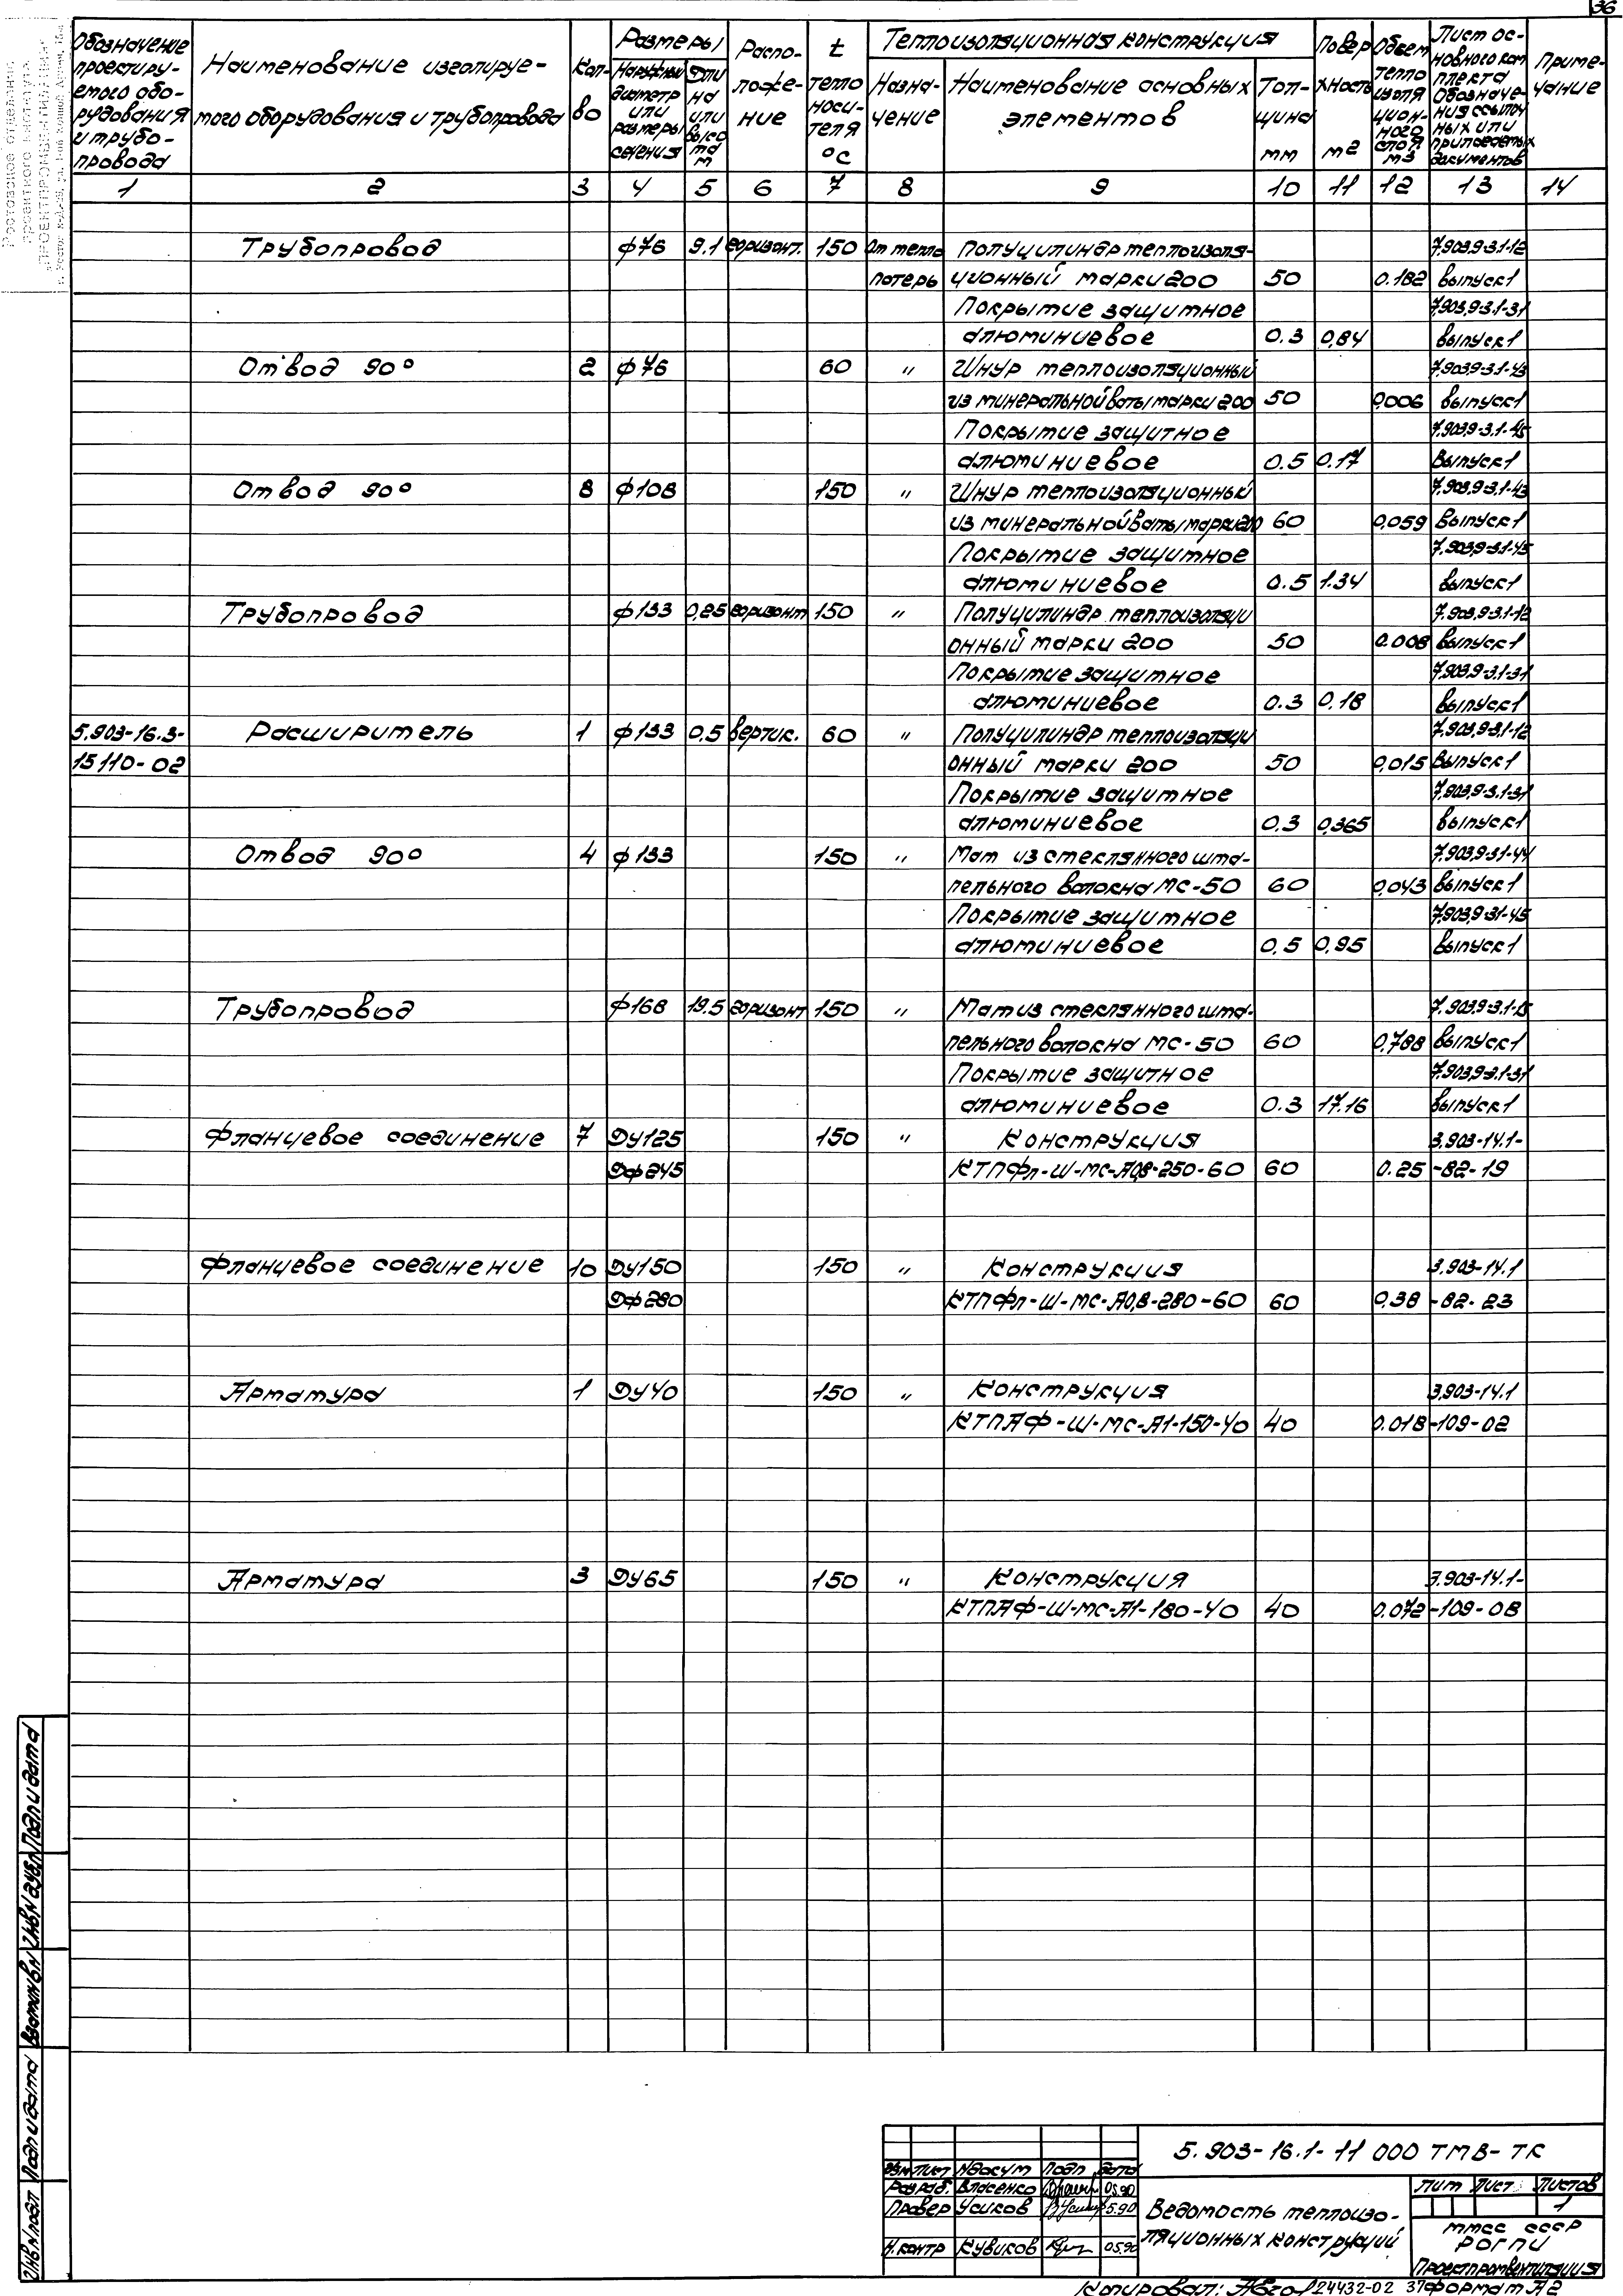 36
Обозначение проектируемого оборудования и трубопровода
Наименование изолируемого оборудования и трубопровода
Кол-во
Размеры
Наружный диаметр или размеры сечения
Длина или высота м
Располо-жение
t теплоносителя °С
Теплоизоляционная конструкция
Назна-чение
Наименование основных элементов
Тол-щина мм
Поверхность м2
Объем теплоизоляцион-ного слоя м3
Лист ос-новного комплекта Обозначе-ния ссылочных или прилагаемых документов
Приме-чание
1 2 3 4 5 6 7 8 9 10 11 12 13 14
Трубопровод ф76 9.1 горизонт. 150 От тепло Полуцилиндр теплоизоля- 7.903.9-3.1-12
потерь ционный марки 200 50 0.182 выпуск 1
Покрытие защитное 7.903.9-3.1-31
алюминиевое 0.3 0,84 выпуск 1
Отвод 90° 2 ф76 60 " Шнур теплоизоляционный 7.903.9-3.1-43
из минеральной ваты марки 200 50 0,006 выпуск 1
Покрытие защитное 7.903.9-3.1-45
алюминиевое 0.5 0.17 Выпуск 1
Отвод 90° 8 ф108 150 " Шнур теплоизоляционный 7.903.9-3.1-43
из минеральной ваты марки 200 60 0,059 выпуск 1
Покрытие защитное 7.903.9-3.1-45
алюминиевое 0.5 1.34 выпуск 1
Трубопровод ф133 0,25 горизонт 150 " Полуцилиндр теплоизоляци 7.903.9-3.1-12
онный марки 200 50 0.008 выпуск 1
Покрытие защитное 7.903.9-3.1-31
алюминиевое 0.3 0,18 выпуск 1
5.903-16.3- Расширитель 1 ф133 0,5 вертик. 60 " Полуцилиндр теплоизоляци 7.903.9-3.1-12
15110-02 онный марки 200 50 0,015 Выпуск 1
Покрытие защитное 7.903.9-3.1-31
алюминиевое 0,3 0,365 выпуск 1
Отвод 90° 4 ф133 150 " Мат из стеклянного шта- 7.903.9-3.1-44
пельного волокна МС-50 60 0,043 выпуск 1
Покрытие защитное 7.903.9-3.1-45
алюминиевое 0,5 0,95 выпуск 1
Трубопровод ф168 19.5 горизонт 150 " Мат из стеклянного шта- 7.903.9-3.1-15
пельного волокна МС-50 60 0,788 выпуск 1
Покрытие защитное 7.903.9-3.1-31
алюминиевое 0.3 17.16 выпуск 1
Фланцевое соединение 7 Ду125 150 " Конструкция 3.903-14.1-
Дф245 КТПФл-Ш-МС-А0,8-250-60 60 0.25 -82-19
Фланцевое соединение 10 Ду150 150 " Конструкция 3.903-14.1
Дф280 КТПФл-Ш-МС-А0,8-280-60 60 0,38 -82-23
Арматура 1 Ду40 150 " Конструкция 3.903-14.1
КТПАФ-Ш-МС-А1-150-40 40 0.018 -109-02
Арматура 3 Ду65 150 " Конструкция 3.903-14.1-
КТПАФ-Ш-МС-А1-180-40 40 0.072 -109-08
Инв N подл Подп и дата Взам инв N Инв N дубл Подп и дата
5.903-16.1-11 000 ТМВ-ТК
Изм Лист N докум Подп Дата
Разраб. Власенко 05.90
Провер Усиков 5.90
Н.контр Кувиков 05.90
Ведомость теплоизо-
ляционных конструкций
Лит Лист Листов
1
ММСС СССР
РОГПИ
Проектпромвентиляция
Копировал: 24432-02 37 формат А2